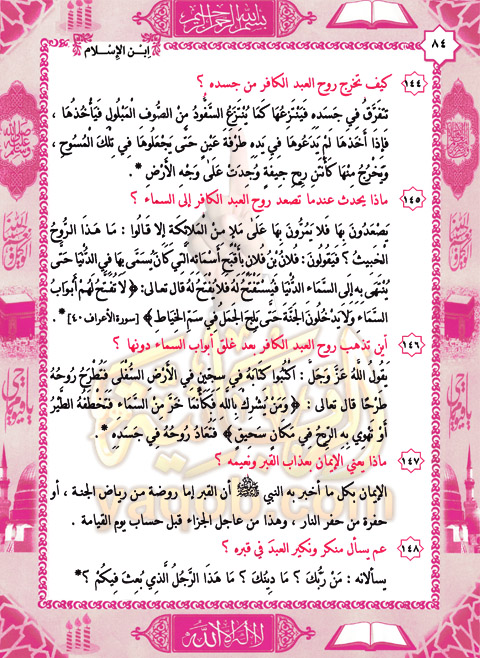 بسم الله الرحمن الرحيم
إبن الإسلام
٨٤
١٤٤ كيف تخرج روح العبد الكافر من جسده ؟
تَتَفَرَّقُ فِي جَسَدِهِ فَيَنْتَزِعُهَا كَمَا يُنْتَزَعُ السَّفُّودُ مِنْ الصُّوفِ الْمَبْلُولِ فَيَأْخُذُهَا ،
فَإِذَا أَخَذَهَا لَمْ يَدَعُوهَا فِي يَدِهِ طَرْفَةَ عَيْنٍ حَتَّى يَجْعَلُوهَا فِي تِلْكَ الْمُسُوحِ ،
وَيَخْرُجُ مِنْهَا كَأَنْتَنِ رِيحِ جِيفَةٍ وُجِدَتْ عَلَى وَجْهِ الْأَرْضِ *.
١٤٥ ماذا يحدث عندما تصعد روح العبد الكافر إلى السماء ؟
يَصْعَدُونَ بِهَا فَلَا يَمُرُّونَ بِهَا عَلَى مَلَإٍ مِنْ الْمَلَائِكَةِ إِلَّا قَالُوا : مَا هَذَا الرُّوحُ
الْخَبِيثُ ؟ فَيَقُولُونَ : فُلَانُ بْنُ فُلَانٍ بِأَقْبَحِ أَسْمَائِهِ الَّتِي كَانَ يُسَمَّى بِهَا فِي الدُّنْيَا حَتَّى
يُنْتَهَى بِهِ إِلَى السَّمَاءِ الدُّنْيَا فَيُسْتَفْتَحُ لَهُ فَلَا يُفْتَحُ لَهُ قال تعالى: ﴿ لَا تُفَتَّحُ لَهُمْ أَبْوَابُ
السَّمَاءِ وَلَا يَدْخُلُونَ الْجَنَّةَ حَتَّى يَلِجَ الْجَمَلُ فِي سَمِّ الْخِيَاطِ ﴾ [سورة الأعراف ٤٠] *.
١٤٦ أين تذهب روح العبد الكافر بعد غلق أبواب السماء دونها ؟
يَقُولُ اللَّهُ عَزَّ وَجَلَّ : اكْتُبُوا كِتَابَهُ فِي سِجِّينٍ فِي الْأَرْضِ السُّفْلَى فَتُطْرَحُ رُوحُهُ
طَرْحًا قال تعالى : ﴿ وَمَنْ يُشْرِكْ بِاللَّهِ فَكَأَنَّمَا خَرَّ مِنَ السَّمَاءِ فَتَخْطَفُهُ الطَّيْرُ
أَوْ تَهْوِي بِهِ الرِّيحُ فِي مَكَانٍ سَحِيقٍ ﴾ فَتُعَادُ رُوحُهُ فِي جَسَدِهِ *.
١٤٧ ماذا يعني الإيمان بعذاب القبر ونعيمه ؟
الإيمان بكل ما أخبر به النبي ﷺ أن القبر إما روضة من رياض الجنة ، أو
حفرة من حفر النار ، وهذا من عاجل الجزاء قبل حساب يوم القيامة .
١٤٨ عم يسأل منكر ونكير العبد في قبره ؟
يسألانه : مَنْ رَبُّكَ ؟ مَا دِينُكَ ؟ مَا هَذَا الرَّجُلُ الَّذِي بُعِثَ فِيكُمْ ؟*
لا إله إلا الله